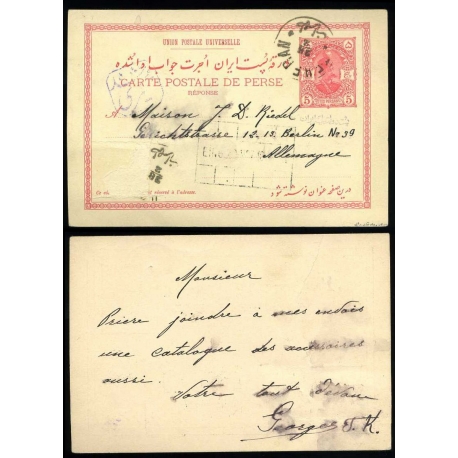 UNION POSTALE UNIVERSELLE
ورقهٔ پست ایران اجرت جواب ادا شده
CARTE POSTALE DE PERSE
RÉPONSE
A Maison J. D. Riedel
Gerichtstrasse 12.13. Berlin No 39
Allemagne
5
5
درین صفحه عنوان نوشته شود
Monsieur
Priere joindre à mes envois
une catalogue des accessoires
aussi.
Votre tout dévoué
George T. K.